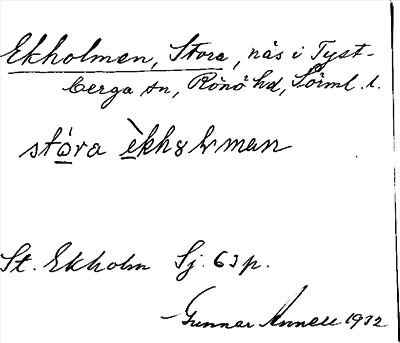 Ekholmen, Stora, näs i Tyst-
berga sn, Rönö hd, Sörml. l.
stὼra èkhɷlman
St. Ekholm Sj. 63 p.
Gunnar Annell 1932